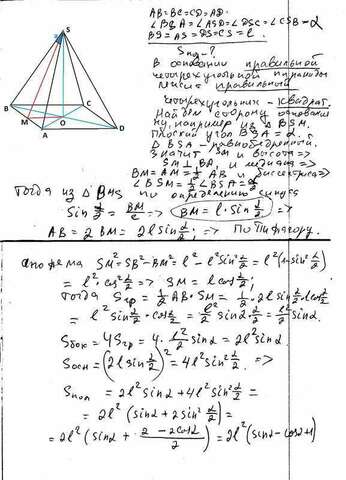 S
B
C
M
O
A
D
AB=BC=CD=AD.
∠BSA=∠ASD=∠DSC=∠CSB=α
BS=AS=DS=CS=l.
Sпол-?
В основании правильной
четырехугольной пирамиды
лежит правильный
четырехугольник - квадрат.
Найдем сторону основани
ну, например из ΔBSM.
Плоский угол BSA=α.
ΔBSA-равнобедренный.
Значит SM и высота =>
SM⊥BA, и медиана =>
BM=AM=½AB и биссектриса=>
∠BSM=½∠BSA=α/2
Тогда из ΔBMS по определению синуса
Sin α/2 = BM/l => BM=l·Sin α/2 =>
AB=2BM=2l sin α/2; => По Пифагору.
теорема SM²=SB²-BM²=l²-l²sin²α/2=l²(1-sin²α/2)
=l²·cos²α/2 => SM=l cos α/2;
Тогда Sгр=½AB·SM=½·2l sin α/2·l cos α/2
=l² sin α/2·cos α/2=l²/2 sin 2·α/2=l²/2 sin α.
Sбок=4Sгр=4·l²/2 sin α=2l² sin α
Sосн=(2l sin α/2)²=4l² sin² α/2 =>
Sпол=2l² sin α+4l² sin² α/2=
=2l²(sin α+2 sin² α/2)=
=2l²(sin α+2-2cos α/2)=2l²(sin α-cos α+1)